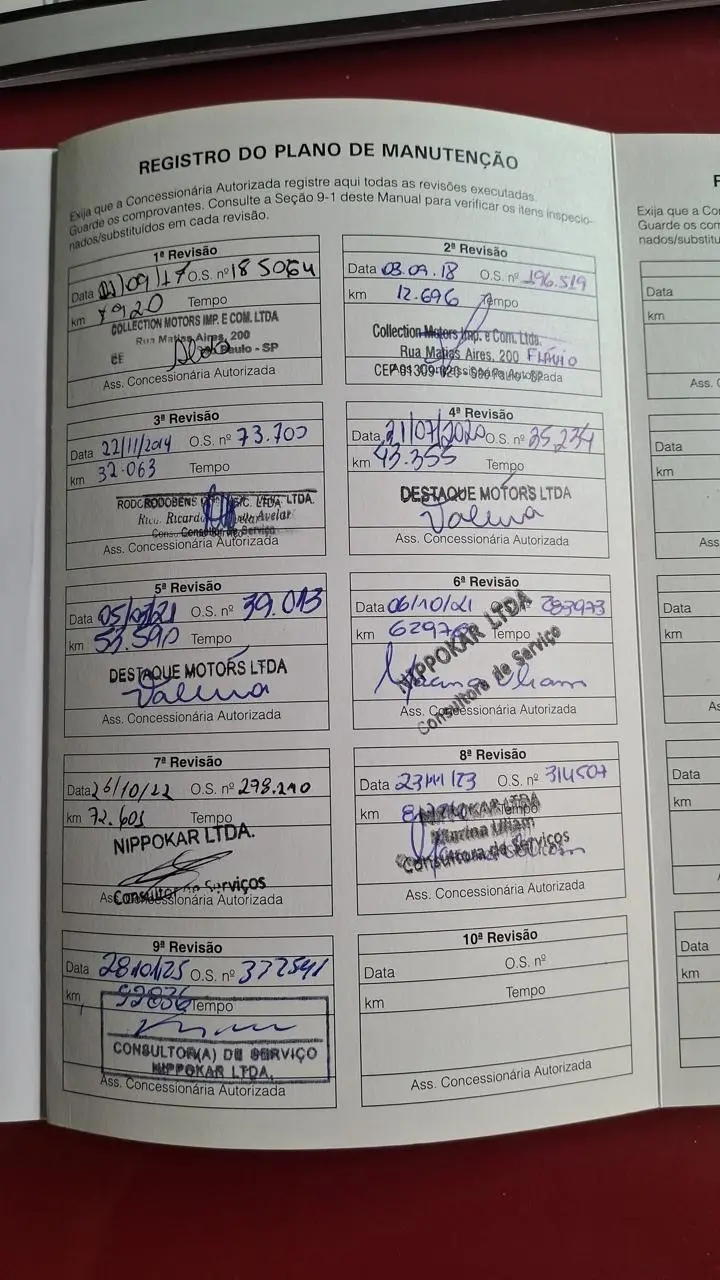 REGISTRO DO PLANO DE MANUTENÇÃO
Exija que a Concessionária Autorizada registre aqui todas as revisões executadas.
Guarde os comprovantes. Consulte a Seção 9-1 deste Manual para verificar os itens inspecio-
nados/substituídos em cada revisão.
1ª Revisão
Data /09/17 O.S. nº 185064
km 7920 Tempo
COLLECTION MOTORS IMP. E COM. LTDA
Rua Matias Aires, 200
CE Paulo - SP
Ass. Concessionária Autorizada
2ª Revisão
Data 03.09.18 O.S. nº 196.519
km 12.696 Tempo
Collection Motors Imp. e Com. Ltda.
Rua Matias Aires, 200 FLÁVIO
CEP 01309-020 - São Paulo - SP
3ª Revisão
Data 22/11/2019 O.S. nº 73.700
km 32.063 Tempo
RODOBENS LTDA.
Ricardo Avelar
Consultor de Serviço
Ass. Concessionária Autorizada
4ª Revisão
Data 21/07/2020 O.S. nº 35.234
km 43.355 Tempo
DESTAQUE MOTORS LTDA
Valeria
Ass. Concessionária Autorizada
5ª Revisão
Data 05/ /21 O.S. nº 39.013
km 53.590 Tempo
DESTAQUE MOTORS LTDA
Valeria
Ass. Concessionária Autorizada
6ª Revisão
Data 06/10/21 283973
km 6297 Tempo
NIPPOKAR LTDA
Consultora de Serviço
Ass. Concessionária Autorizada
7ª Revisão
Data 26/10/22 O.S. nº 298.210
km 72.601 Tempo
NIPPOKAR LTDA.
Consultor de Serviços
Ass. Concessionária Autorizada
8ª Revisão
Data 23/11/23 O.S. nº 314507
km Tempo
NIPPOKAR LTDA
Marina Uliam
Consultora de Serviços
Ass. Concessionária Autorizada
9ª Revisão
Data 28/10/25 O.S. nº 377541
km 92836 Tempo
CONSULTOR(A) DE SERVIÇO
NIPPOKAR LTDA.
Ass. Concessionária Autorizada
10ª Revisão
Data O.S. nº
km Tempo
Ass. Concessionária Autorizada
Exija que a Co
Guarde os com
nados/substitu
Data
km
Ass.
Data
km
Ass
Data
km
As
Data
km
Data
km